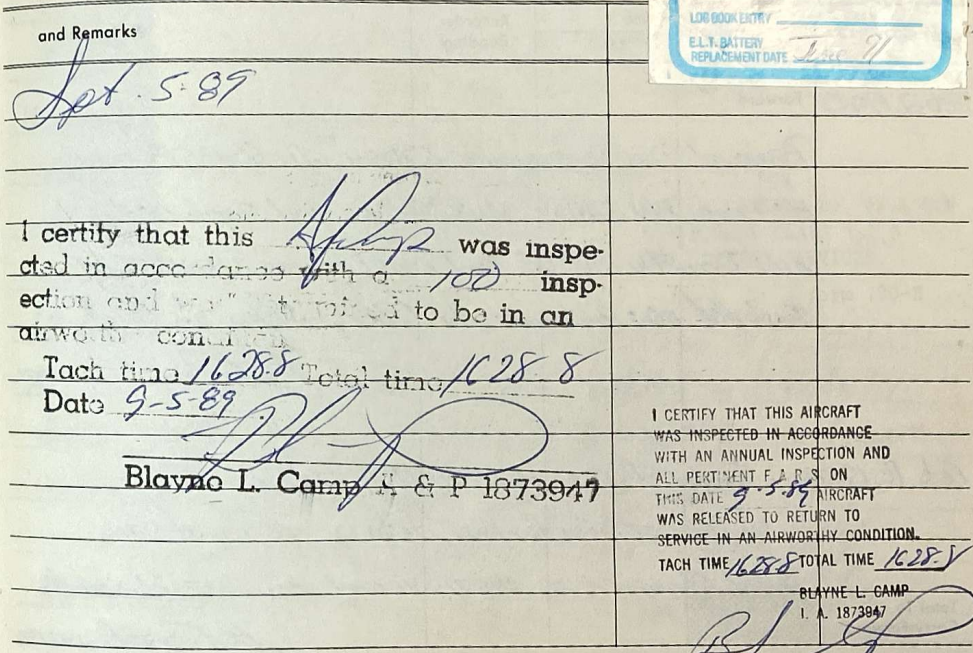 and Remarks
LOG BOOK ENTRY
E.L.T. BATTERY
REPLACEMENT DATE June 91
Sept. 5-89
I certify that this was inspe-
cted in accordance with a 100 insp-
ection and was determined to be in an
airworthy condition
Tach time 1628.8 Total time 1628.8
Date 9-5-89
Blayne L. Camp A & P 1873947
I CERTIFY THAT THIS AIRCRAFT
WAS INSPECTED IN ACCORDANCE
WITH AN ANNUAL INSPECTION AND
ALL PERTINENT F A R S ON
THIS DATE 9-5-89 AIRCRAFT
WAS RELEASED TO RETURN TO
SERVICE IN AN AIRWORTHY CONDITION.
TACH TIME 1628.8 TOTAL TIME 1628.8
BLAYNE L. CAMP
I. A. 1873947